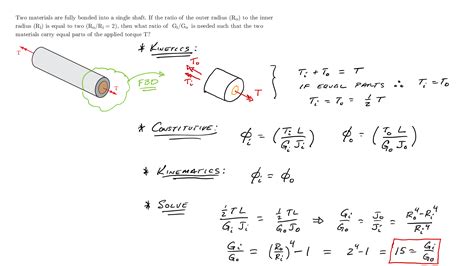 Two materials are fully bonded into a single shaft. If the ratio of the outer radius (Rₒ) to the inner
radius (Rᵢ) is equal to two (Rₒ/Rᵢ = 2), then what ratio of Gᵢ/Gₒ is needed such that the two
materials carry equal parts of the applied torque T?
* KINETICS:
T
T
FBD
Tₒ
Tᵢ
T
Tᵢ + Tₒ = T
IF EQUAL PARTS ∴ Tᵢ = Tₒ
Tᵢ = Tₒ = 1/2 T
* CONSTITUTIVE: ϕᵢ = (Tᵢ L / Gᵢ Jᵢ) ϕₒ = (Tₒ L / Gₒ Jₒ)
* KINEMATICS: ϕᵢ = ϕₒ
* SOLVE
1/2 TL / Gᵢ Jᵢ = 1/2 TL / Gₒ Jₒ ⇒ Gᵢ / Gₒ = Jₒ / Jᵢ = Rₒ⁴ - Rᵢ⁴ / Rᵢ⁴
Gᵢ / Gₒ = (Rₒ / Rᵢ)⁴ - 1 = 2⁴ - 1 = 15 = Gᵢ / Gₒ